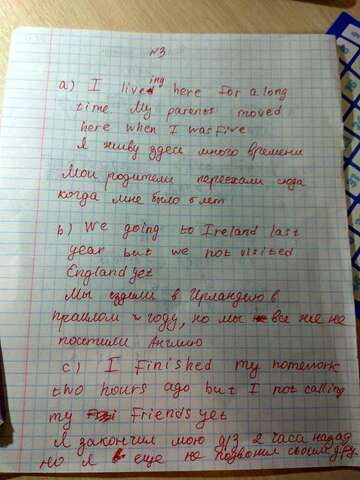 N3
a) I liveding here for a long
time My parents moved
here when I was five
Я живу здесь много времени
Мои родители переехали сюда
когда мне было 5 лет
b) We going to Ireland last
year but we not visited
England yet
Мы ездили в Ирландию в
прошлом году, но мы все же не
посетили Англию
c) I finished my homework
two hours ago but I not calling
my friends yet
Я закончил мою д/з 2 часа назад
но я еще не позвонил своим